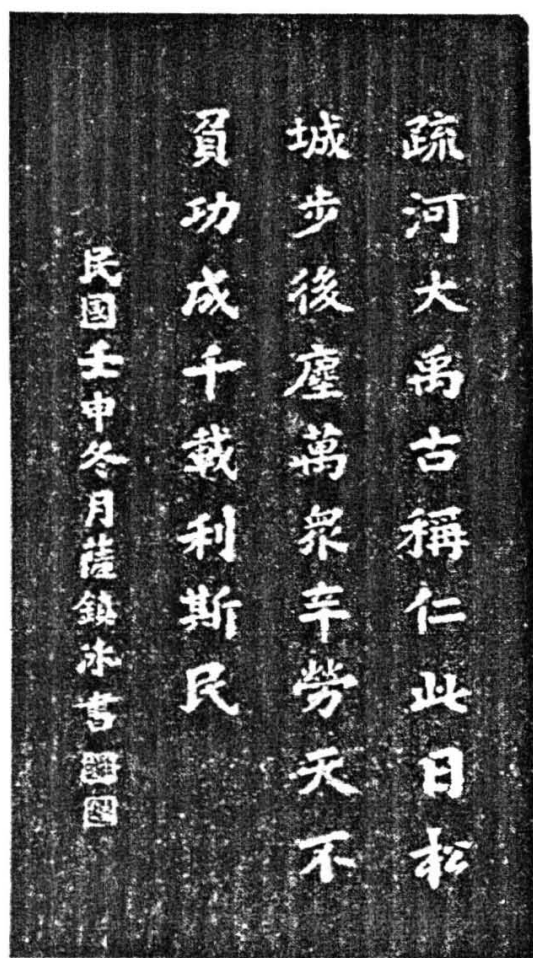 疏河大禹古稱仁此日松
城步後塵萬眾辛勞天不
負功成千載利斯民
民國壬申冬月薩鎮冰書